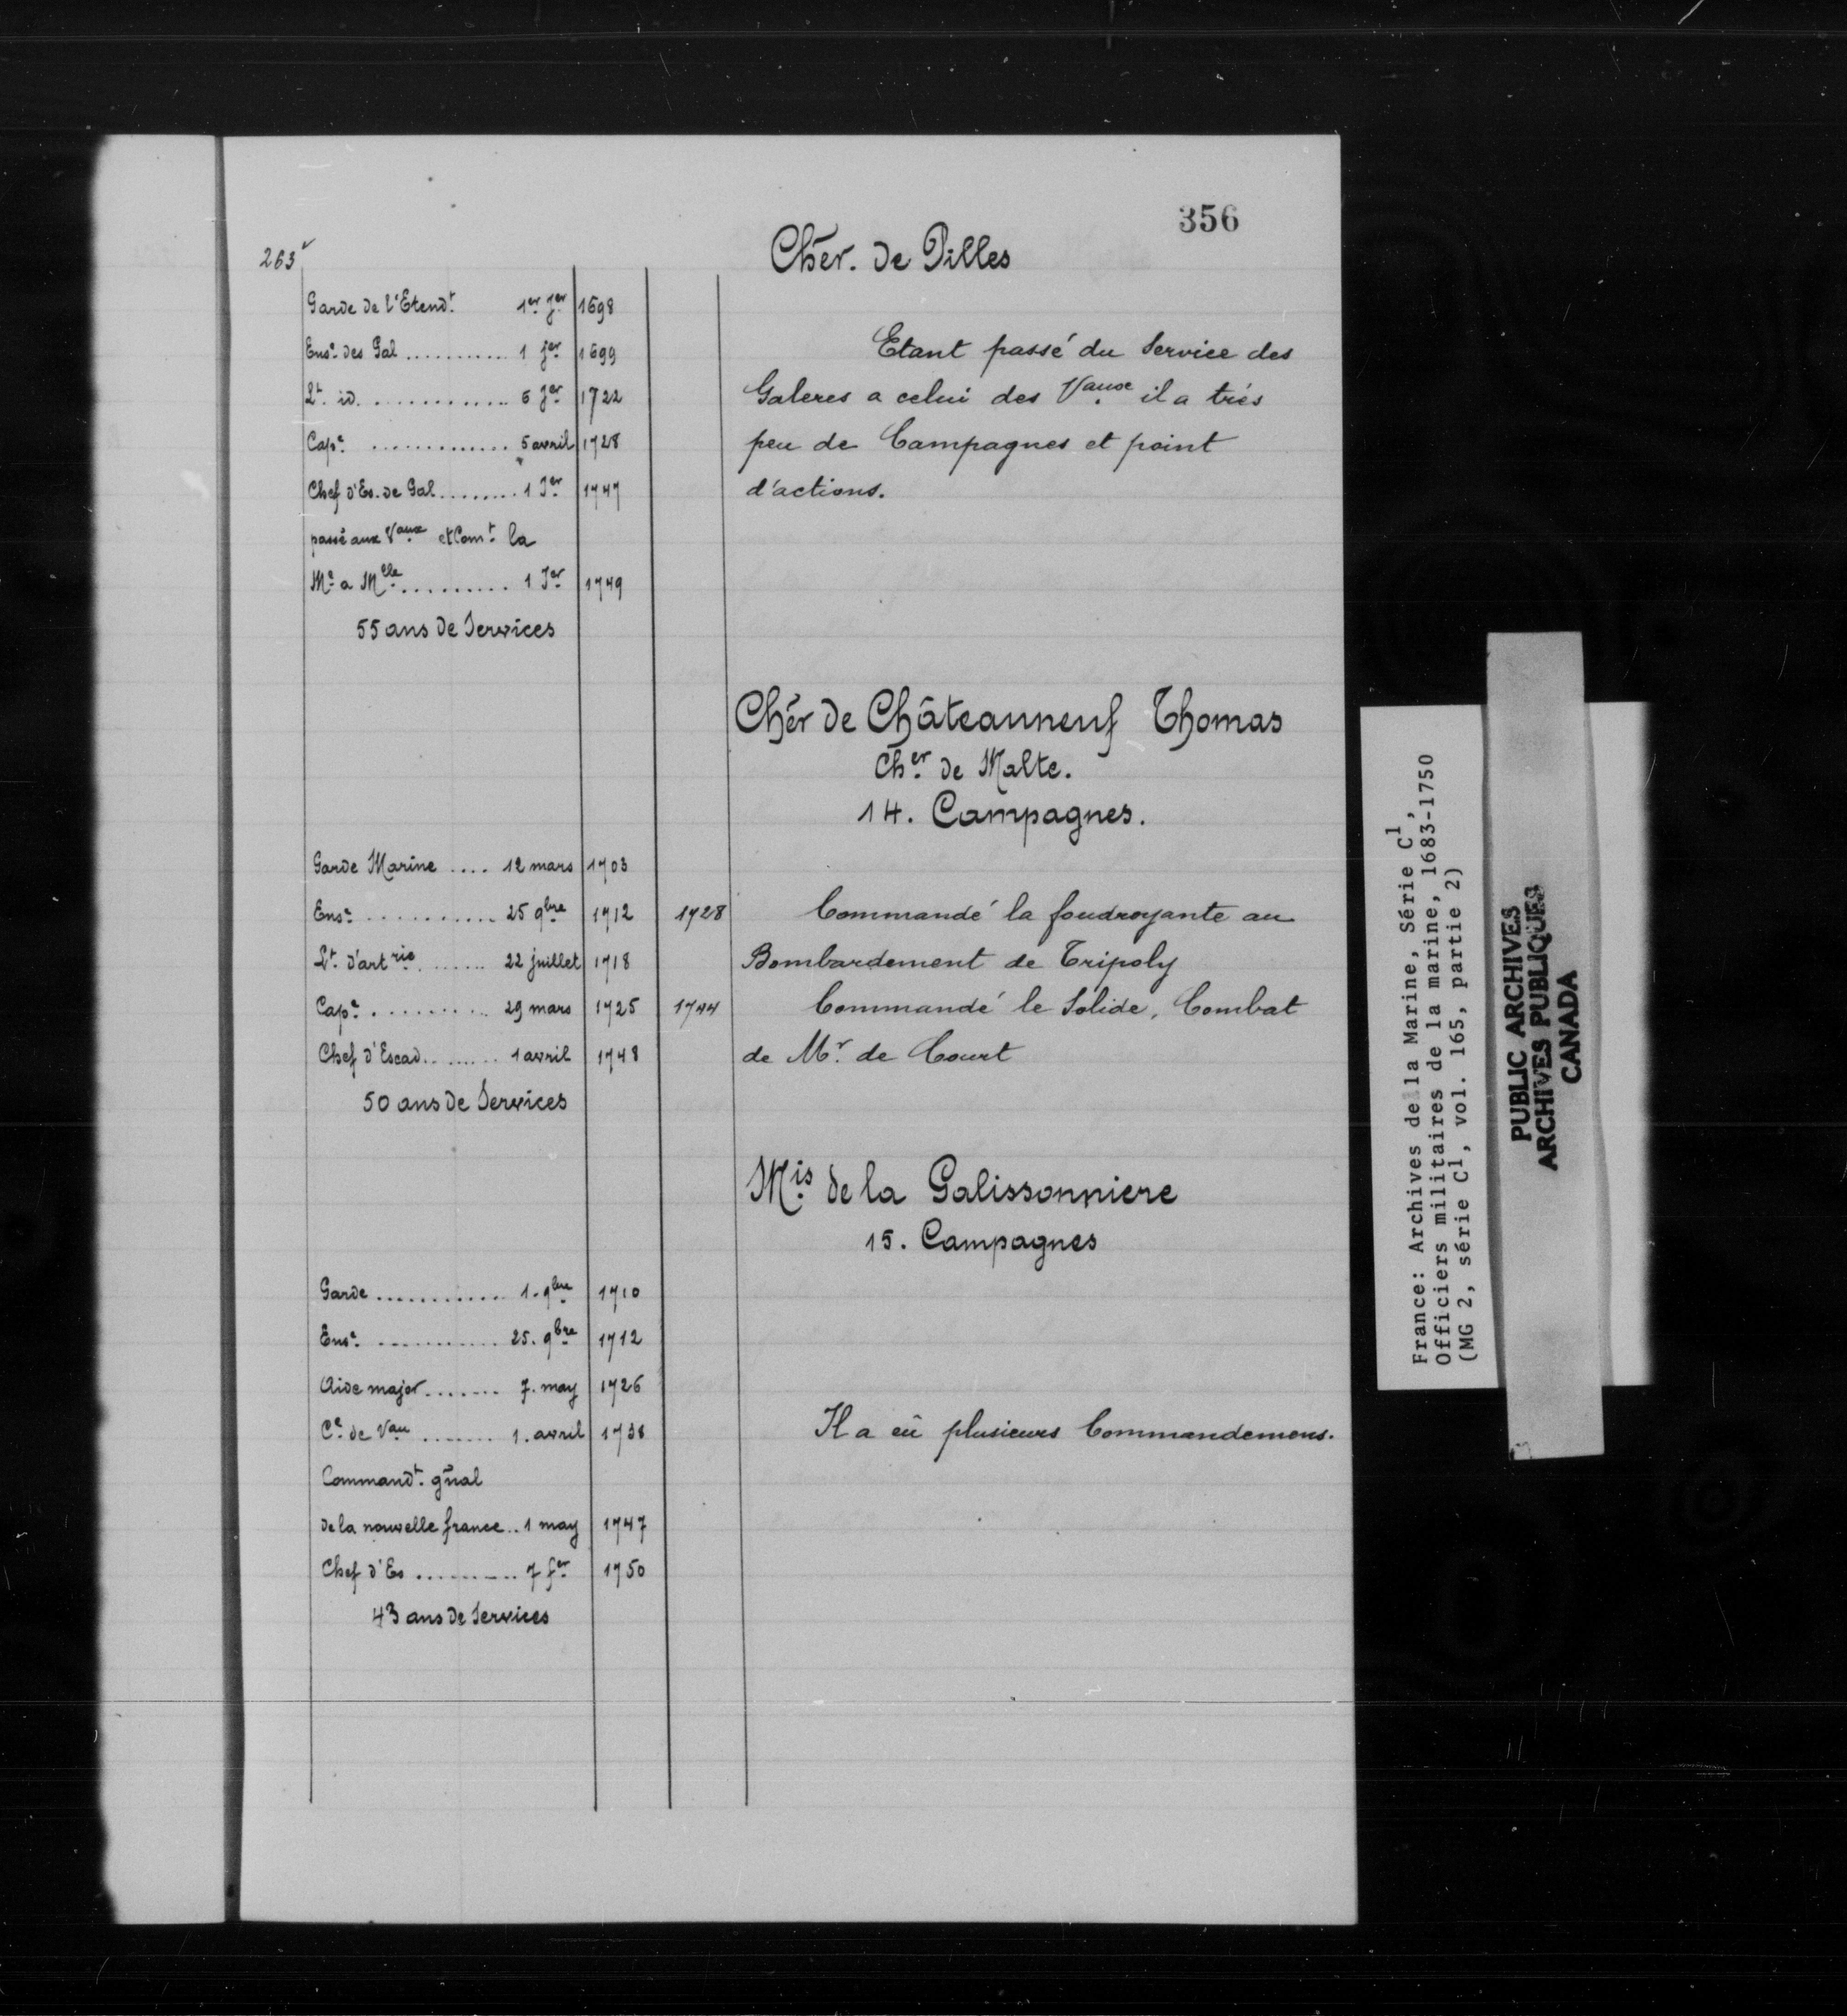 356
263v
Cher. de Pilles
Garde de l'Etendt. 1er Jer 1698
Ense. des Gal ........... 1 Jer 1699
Lt. id. ............. 6 Jer 1722
Cape. ............. 5 avril 1728
Chef d'Es. de Gal ........ 1 Jer 1747
passé aux Vaux et Comt. la
Me. a Mlle ......... 1 Jer 1749
55 ans de Services
Etant passé du Service des
Galeres a celui des Vaux il a trés
peu de Campagnes et point
d'actions.
Cher de Châteauneuf Thomas
Cher de Malte.
14. Campagnes.
Garde Marine .... 12 mars 1703
Ense. ........... 25 9bre 1712
Lt. d'artrie ....... 22 juillet 1718
Cape. .......... 29 mars 1725
Chef d'Escad. ....... 1 avril 1748
50 ans de Services
1728 Commandé la foudroyante au
Bombardement de Tripoly
1744 Commandé le Solide, Combat
de Mr. de Court
Mis de la Galissonniere
15. Campagnes
Garde ............ 1. 9bre 1710
Ense. ........... 25. 9bre 1712
Aide major ....... 7. may 1726
Ce. de Vau ....... 1. avril 1738
Commandt. gñal
de la nouvelle france .. 1 may 1747
Chef d'Es .......... 7 fer 1750
43 ans de Services
Il a eû plusieurs Commandemens.
France: Archives de la Marine, Série C1,
Officiers militaires de la marine, 1683-1750
(MG 2, série C1, vol. 165, partie 2)
PUBLIC ARCHIVES
ARCHIVES PUBLIQUES
CANADA